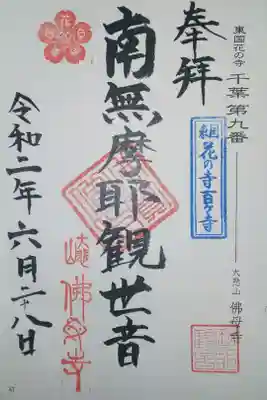 東国花の寺 千葉 第九番
大慈山 佛母寺
奉拝
東国花の寺百ヶ寺
南無摩耶観世音
佛母寺
令和二年六月二十八日